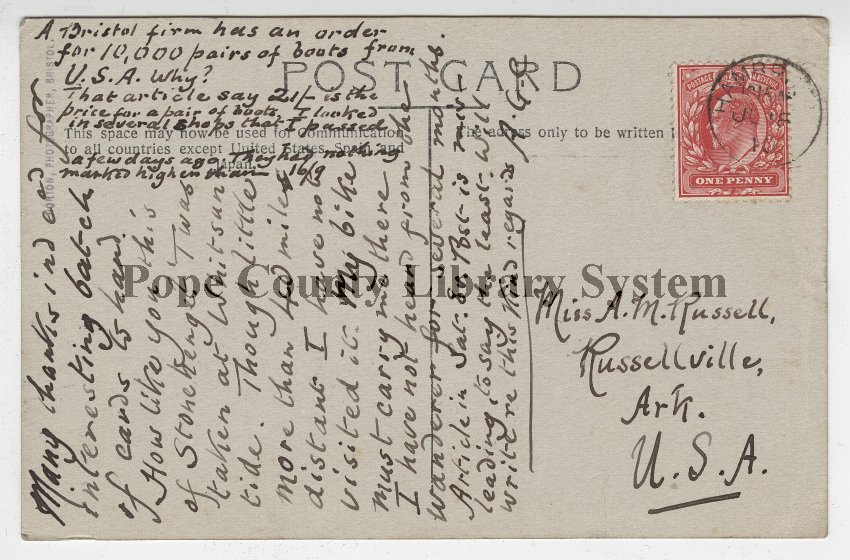 A Bristol firm has an order
for 10,000 pairs of boots from
U.S.A. Why?
That article say 21/- is the
price for a pair of boots, I looked
in several shops that I passed
a few days ago. They had nothing
marked higher than 16/9
POST CARD
This space may now be used for communication
to all countries except United States, Spain and
Japan.
The address only to be written
PHOTOGRAPHER, BRISTOL.
POSTAGE
ONE PENNY
JU
10
Many thanks indeed for
interesting batch
of cards to hand.
How like you this
of Stonehenge? Twas
taken at Whitsun
tide. Though little
more than 40 miles
distant I have not
visited it. My bike
must carry me there
I have not heard from the
wanderer for several months.
Article in Sat. Ev. Post is mis
leading to say the least. Will
write re this Kind regards A.G.G
Miss A.M. Russell,
Russellville,
Ark.
U.S.A.
Pope County Library System